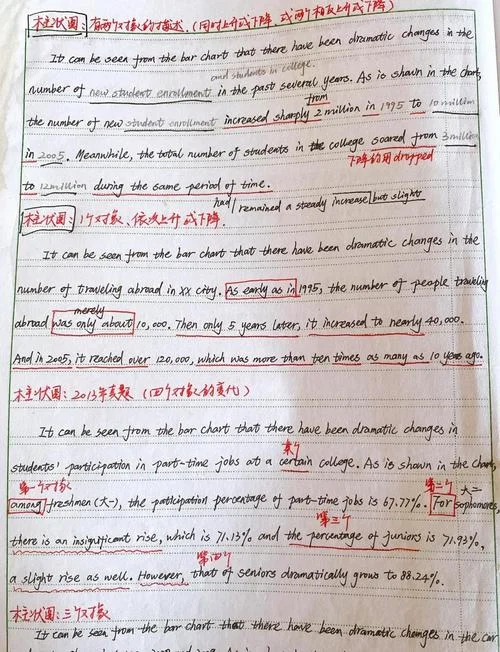 柱状图: 有两个对象的描述. (同时上升或下降 或两个相反上升或下降)
It can be seen from the bar chart that there have been dramatic changes in the
and students in college.
number of new student enrollment in the past several years. As is shown in the chart,
from
the number of new student enrollment increased sharply 2 million in 1995 to 10 million
in 2005. Meanwhile, the total number of students in the college soared from 3 million
下降的用 dropped
to 12 million during the same period of time.
had remained a steady increase but slight
柱状图: 1个对象、依次上升或下降.
It can be seen from the bar chart that there have been dramatic changes in the
number of traveling abroad in xx city. As early as in 1995, the number of people traveling
merely
abroad was only about 10,000. Then only 5 years later, it increased to nearly 40,000.
And in 2005, it reached over 120,000, which was more than ten times as many as 10 years ago.
柱状图: 2013年真题 (四个对象的变化)
It can be seen from the bar chart that there have been dramatic changes in
某个
students' participation in part-time jobs at a certain college. As is shown in the chart,
第一个对象
第二个 大二
among freshmen (大一), the paticipation percentage of part-time jobs is 67.77%. For sophomores,
第三个
there is an insignificant rise, which is 71.13% and the percentage of juniors is 71.93%,
第四个
a slight rise as well. However, that of seniors dramatically grows to 88.24%.
柱状图: 三个对象
It can be seen from the bar chart that there have been dramatic changes in the car